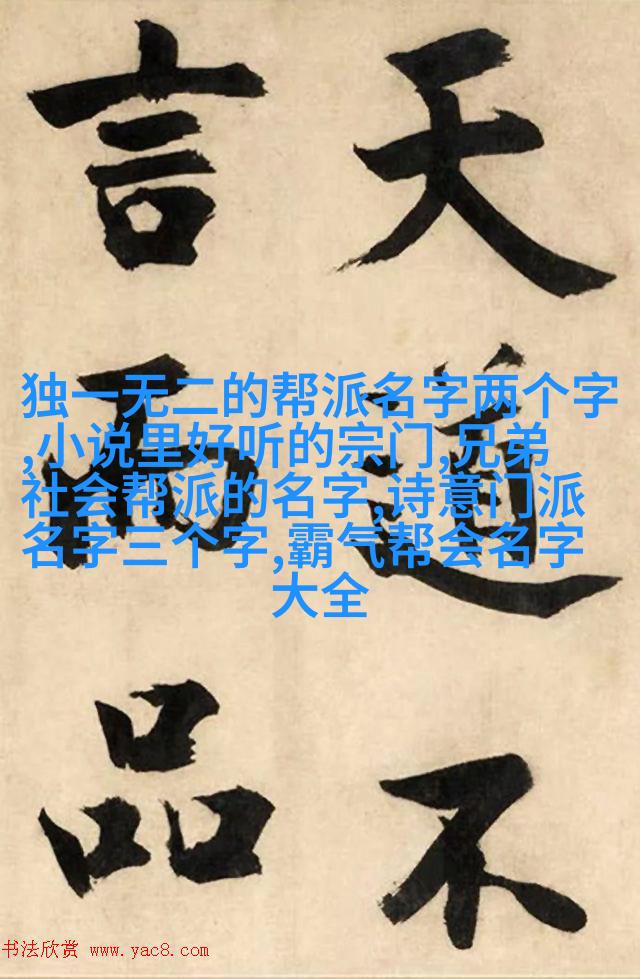 天道不
言而品
独一无二的帮派名字两个字
,小说里好听的宗门,兄弟
社会帮派的名字,诗意门派
名字三个字,霸气帮会名字
大全
书法欣赏 www.yac8.com